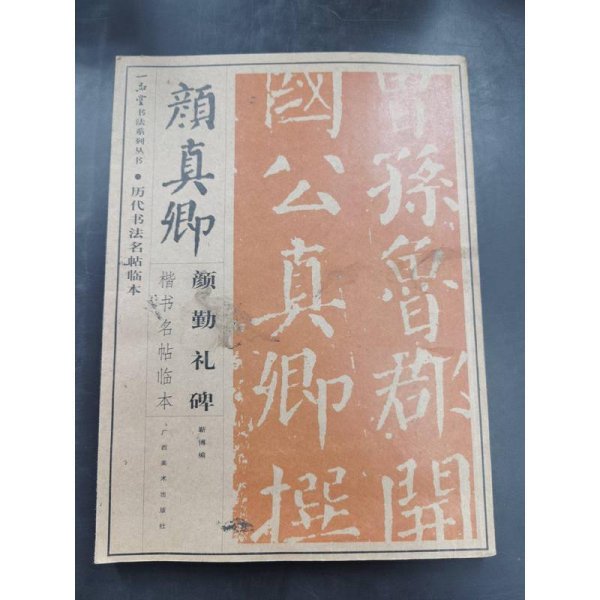 书法系列丛书•历代书法名帖临本
顔真卿
颜勤礼碑
楷书名帖临本
靳博编
广西美术出版社
曾孫魯郡開
國公真卿撰